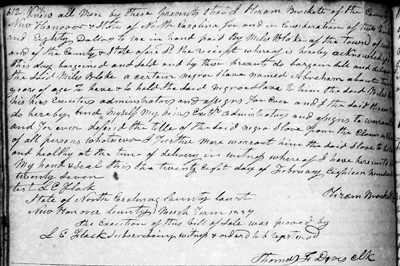 Know all Men by these presents that I Hiram Brockett of the County
New Hanover & State of North Carolina for and in Consideration of
and Eighty Dollars to me in hand paid by Miles Blake of the Town of
and of the County & State aforesd the receipt whereof is hereby acknowledged
this day bargained and sold and by these presents do bargain sell and
the said Miles Blake a certain negro slave named Abraham about
years of age to have & to hold the said negro slave to him the said Miles
his heirs Executors administrators and assigns forever and I the said Hiram
do hereby bind myself my heirs Exrs administrators and assigns to warrant
and forever defend the title of the said negro slave from the claim
of all persons whatsoever I further more warrant him the said slave to be
and healthy at the time of delivery in witness whereof I have hereunto
My hand & seal this the twenty Eight day of February Eighteen hundred
twenty seven
Test L C Flack
Hiram
State of North Carolina County Court
New Hanover County March Term 1827
The execution of this bill of sale was proved by
L C Flack Subscribing witness & ordered to be registered
Thomas F Davis Clk